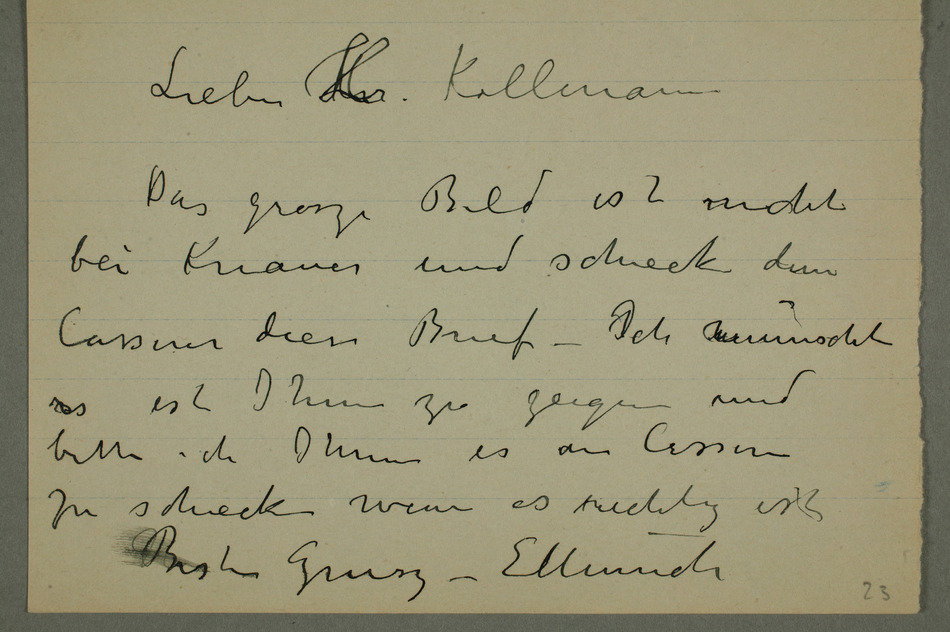 Lieber Hr. Kollmann
Das grosze Bild ist nicht
bei Knauer und schieck dem
Cassirer diesen Brief – Ich wünscht
es erst Ihnen zu zeigen und
bitte ich Ihnen es an Cassirer
zu schieck wenn es richtig ist
Besten Grusz –
23